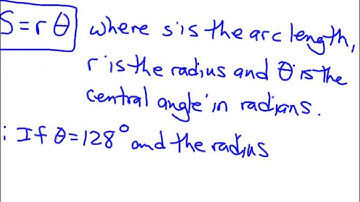 S=rθ where s is the arc length,
r is the radius and θ is the
central angle in radians.
: If θ=128° and the radius